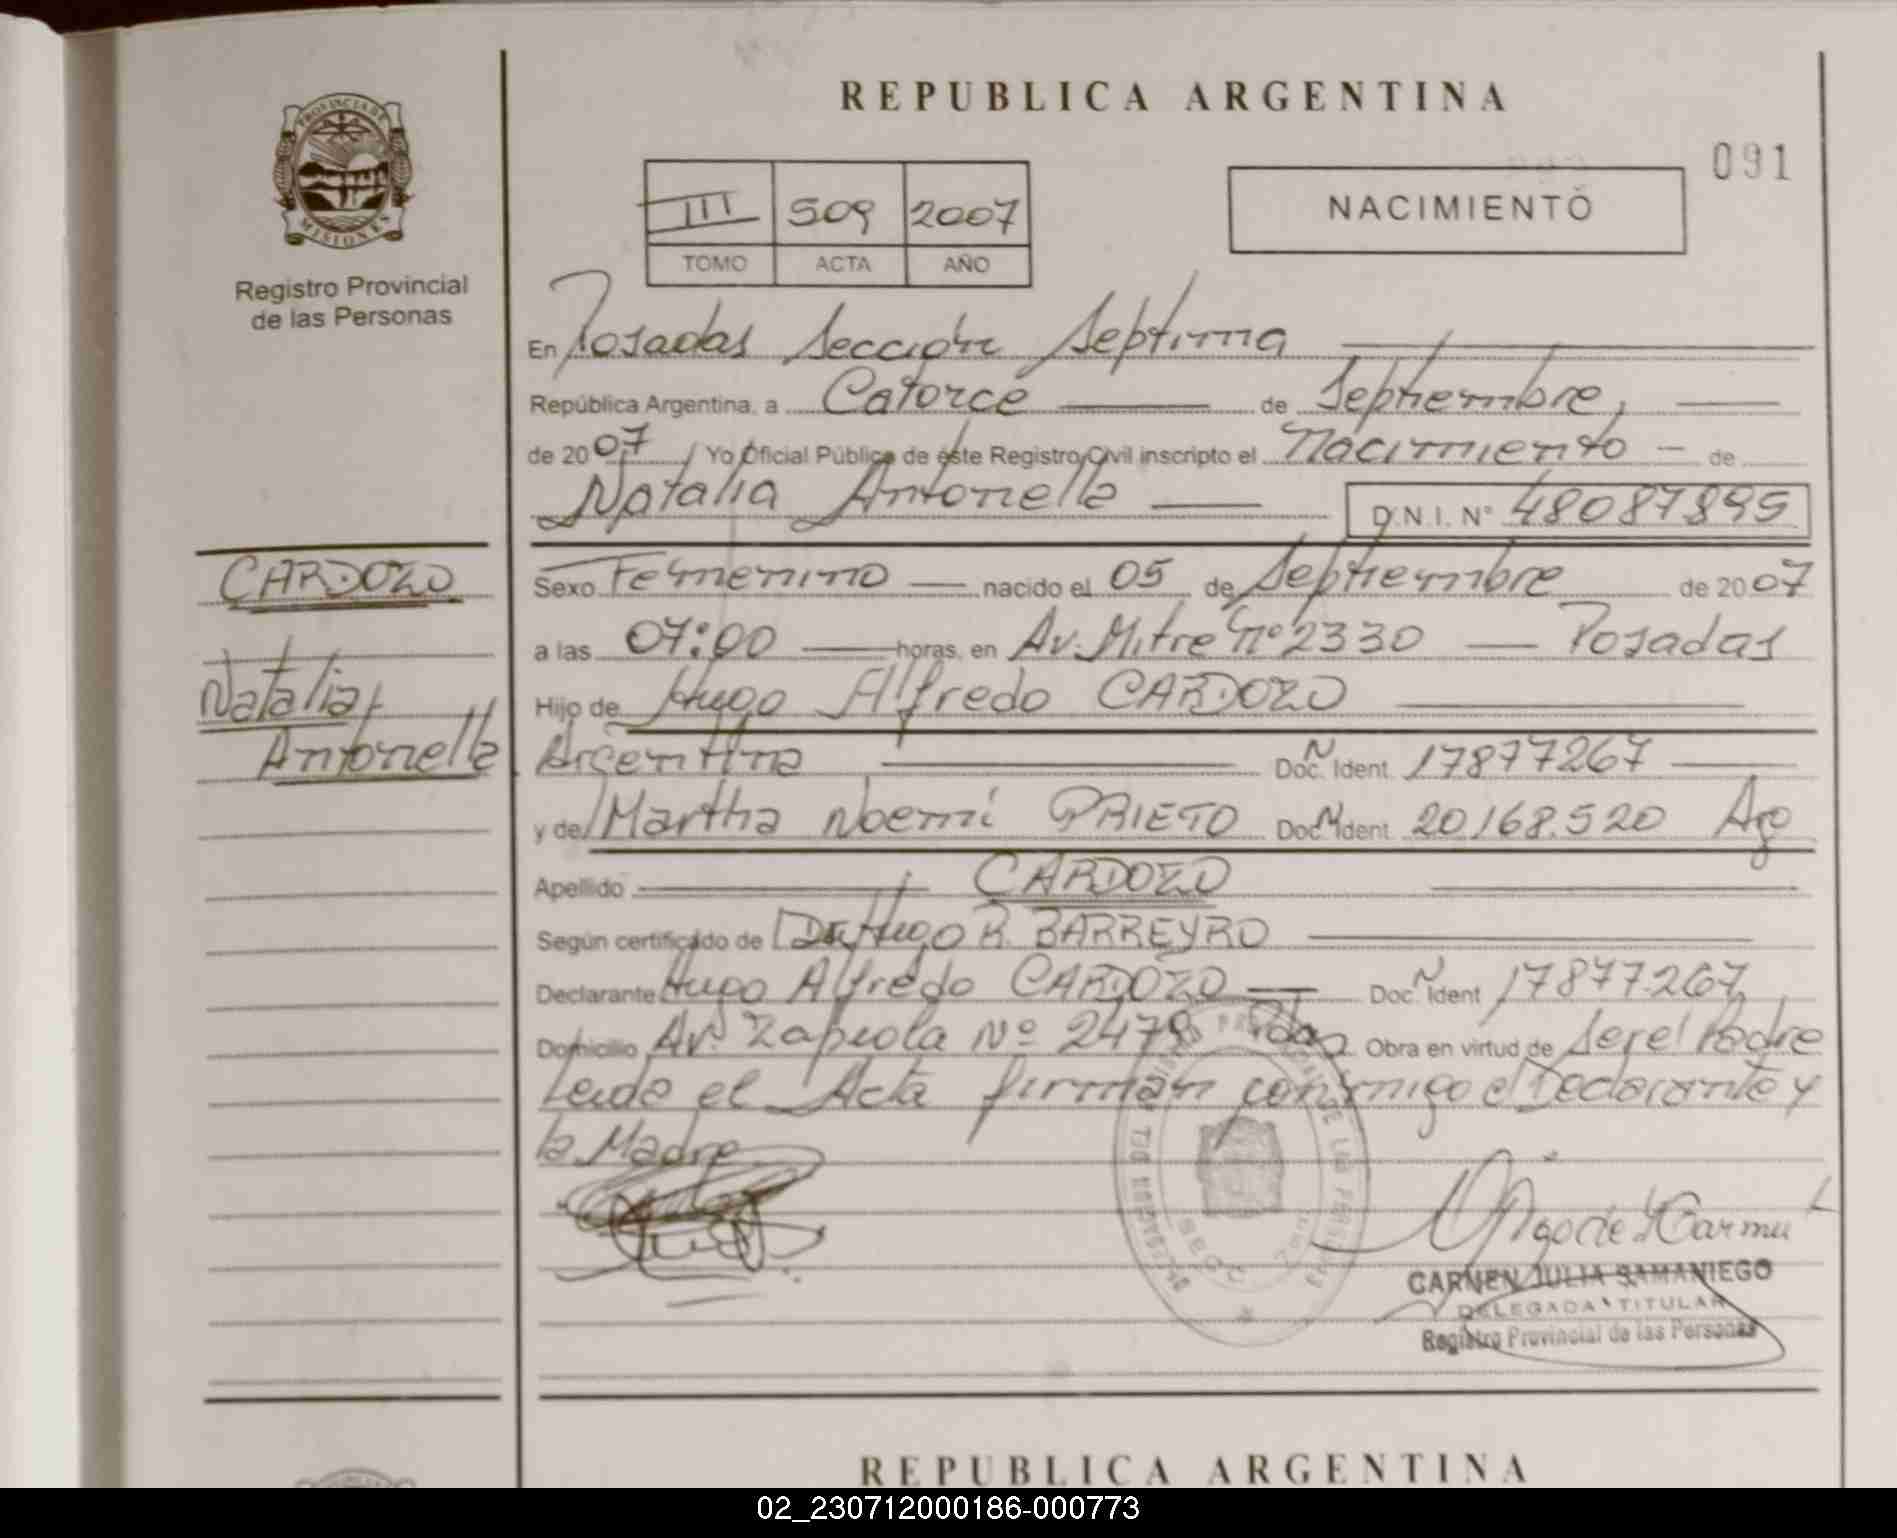 REPUBLICA ARGENTINA
091
PROVINCIA DE
MISIONES
Registro Provincial
de las Personas
III 509 2007
TOMO ACTA AÑO
NACIMIENTO
En Posadas Sección Septima
República Argentina, a Catorce de Septiembre,
de 2007 Yo Oficial Público de éste Registro Civil inscripto el Nacimiento de
Natalia Antonella D.N.I. N° 48087895
CARDOZO
Natalia
Antonella
Sexo Femenino nacido el 05 de Septiembre de 2007
a las 07:00 horas, en Av. Mitre n° 2330 Posadas
Hijo de Hugo Alfredo CARDOZO
Argentina Doc. Ident. 17877267
y de Martha Noemí PRIETO Doc. Ident. 20.168.520 Arg
Apellido CARDOZO
Según certificado de Dr. Hugo R. BARREYRO
Declarante Hugo Alfredo CARDOZO Doc. Ident 17877267
Domicilio Av. Zapiola Nº 2478 Pdas Obra en virtud de Ser el Padre
Leida el Acta firman conmigo el Declarante y
la Madre
CARMEN JULIA SAMANIEGO
DELEGADA TITULAR
Registro Provincial de las Personas
REPUBLICA ARGENTINA
02_230712000186-000773